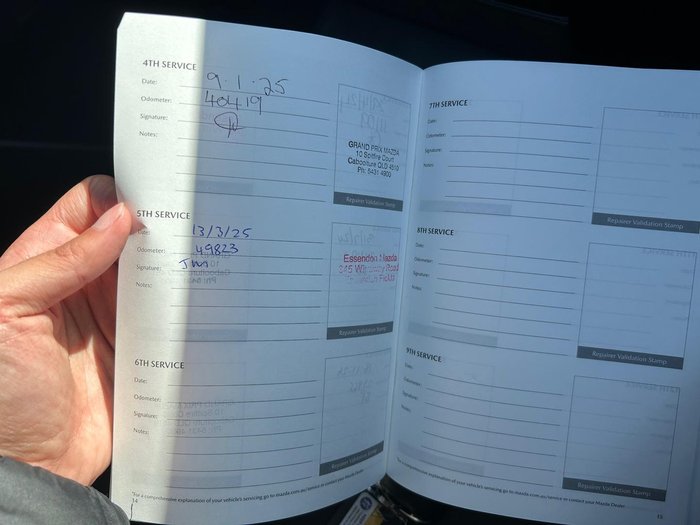 4TH SERVICE
Date: 9.1.25
Odometer: 40419
Signature:
Notes:
GRAND PRIX MAZDA
10 Spitfire Court
Caboolture QLD 4510
Ph: 5431 4900
Repairer Validation Stamp
5TH SERVICE
Date: 13/3/25
Odometer: 49823
Signature:
Notes:
Essendon Mazda
Road
Repairer Validation Stamp
6TH SERVICE
Date:
Odometer:
Signature:
Notes:
Repairer Validation Stamp
*For a comprehensive explanation of your vehicle's servicing go to mazda.com.au/service or contact your Mazda Dealer
14
7TH SERVICE
Date:
Odometer:
Signature:
Notes:
Repairer Validation Stamp
8TH SERVICE
Date:
Odometer:
Signature:
Notes:
Repairer Validation Stamp
9TH SERVICE
Date:
Odometer:
Signature:
Notes:
Repairer Validation Stamp
*For a comprehensive explanation of your vehicle's servicing go to mazda.com.au/service or contact your Mazda Dealer
15